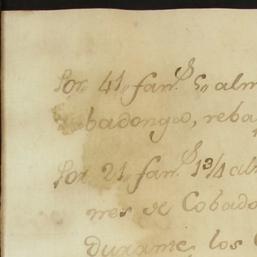 Por 41„ fan.s 5„ alm
badongo, reba
Por 21 fan.s 1 3/4 alm
nes de Cobado
Durante, los